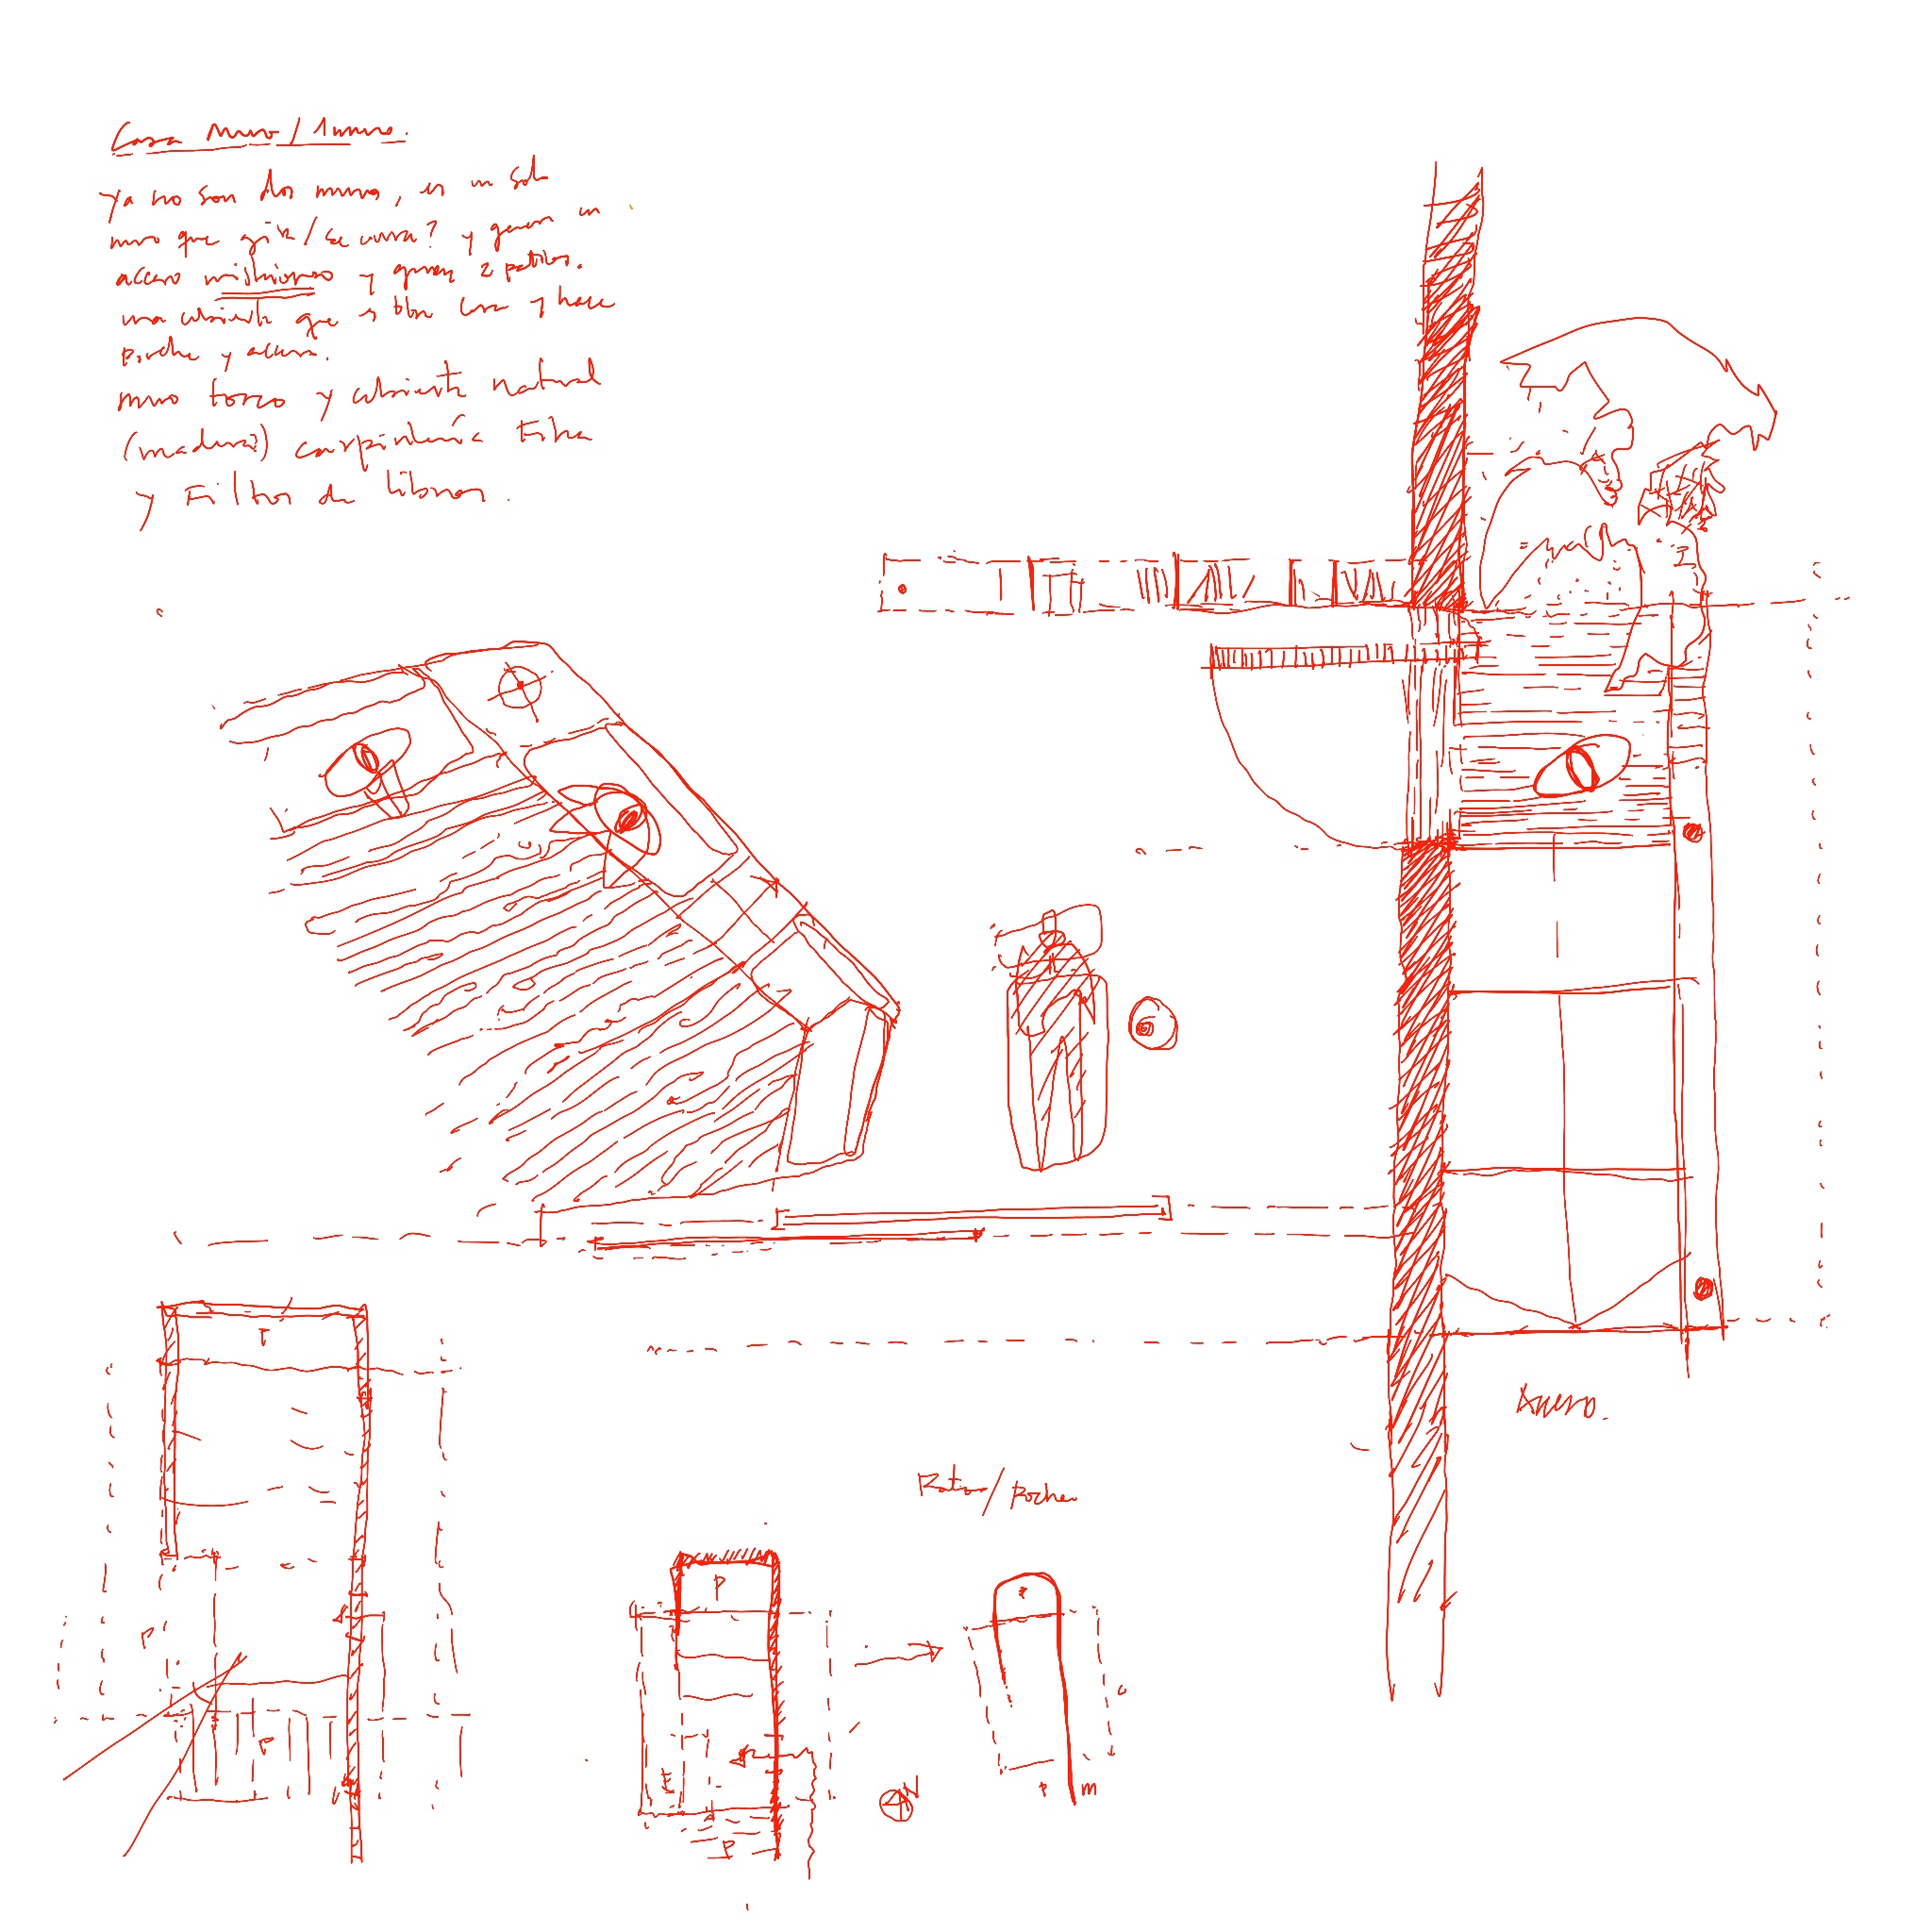 Casa Muro / 1 muro.
Ya no son dos muros, es un solo
muro que gira / se curva? y genera un
acceso misterioso y genera 2 patios.
una cubierta que es toda casa y hace
porche y acceso.
muro tosco y cubierta natural
(madera?) carpintería fina
y Filtros de libros.
Acceso.
Patios / Porches
T
P
P
P
E
P
N
P m